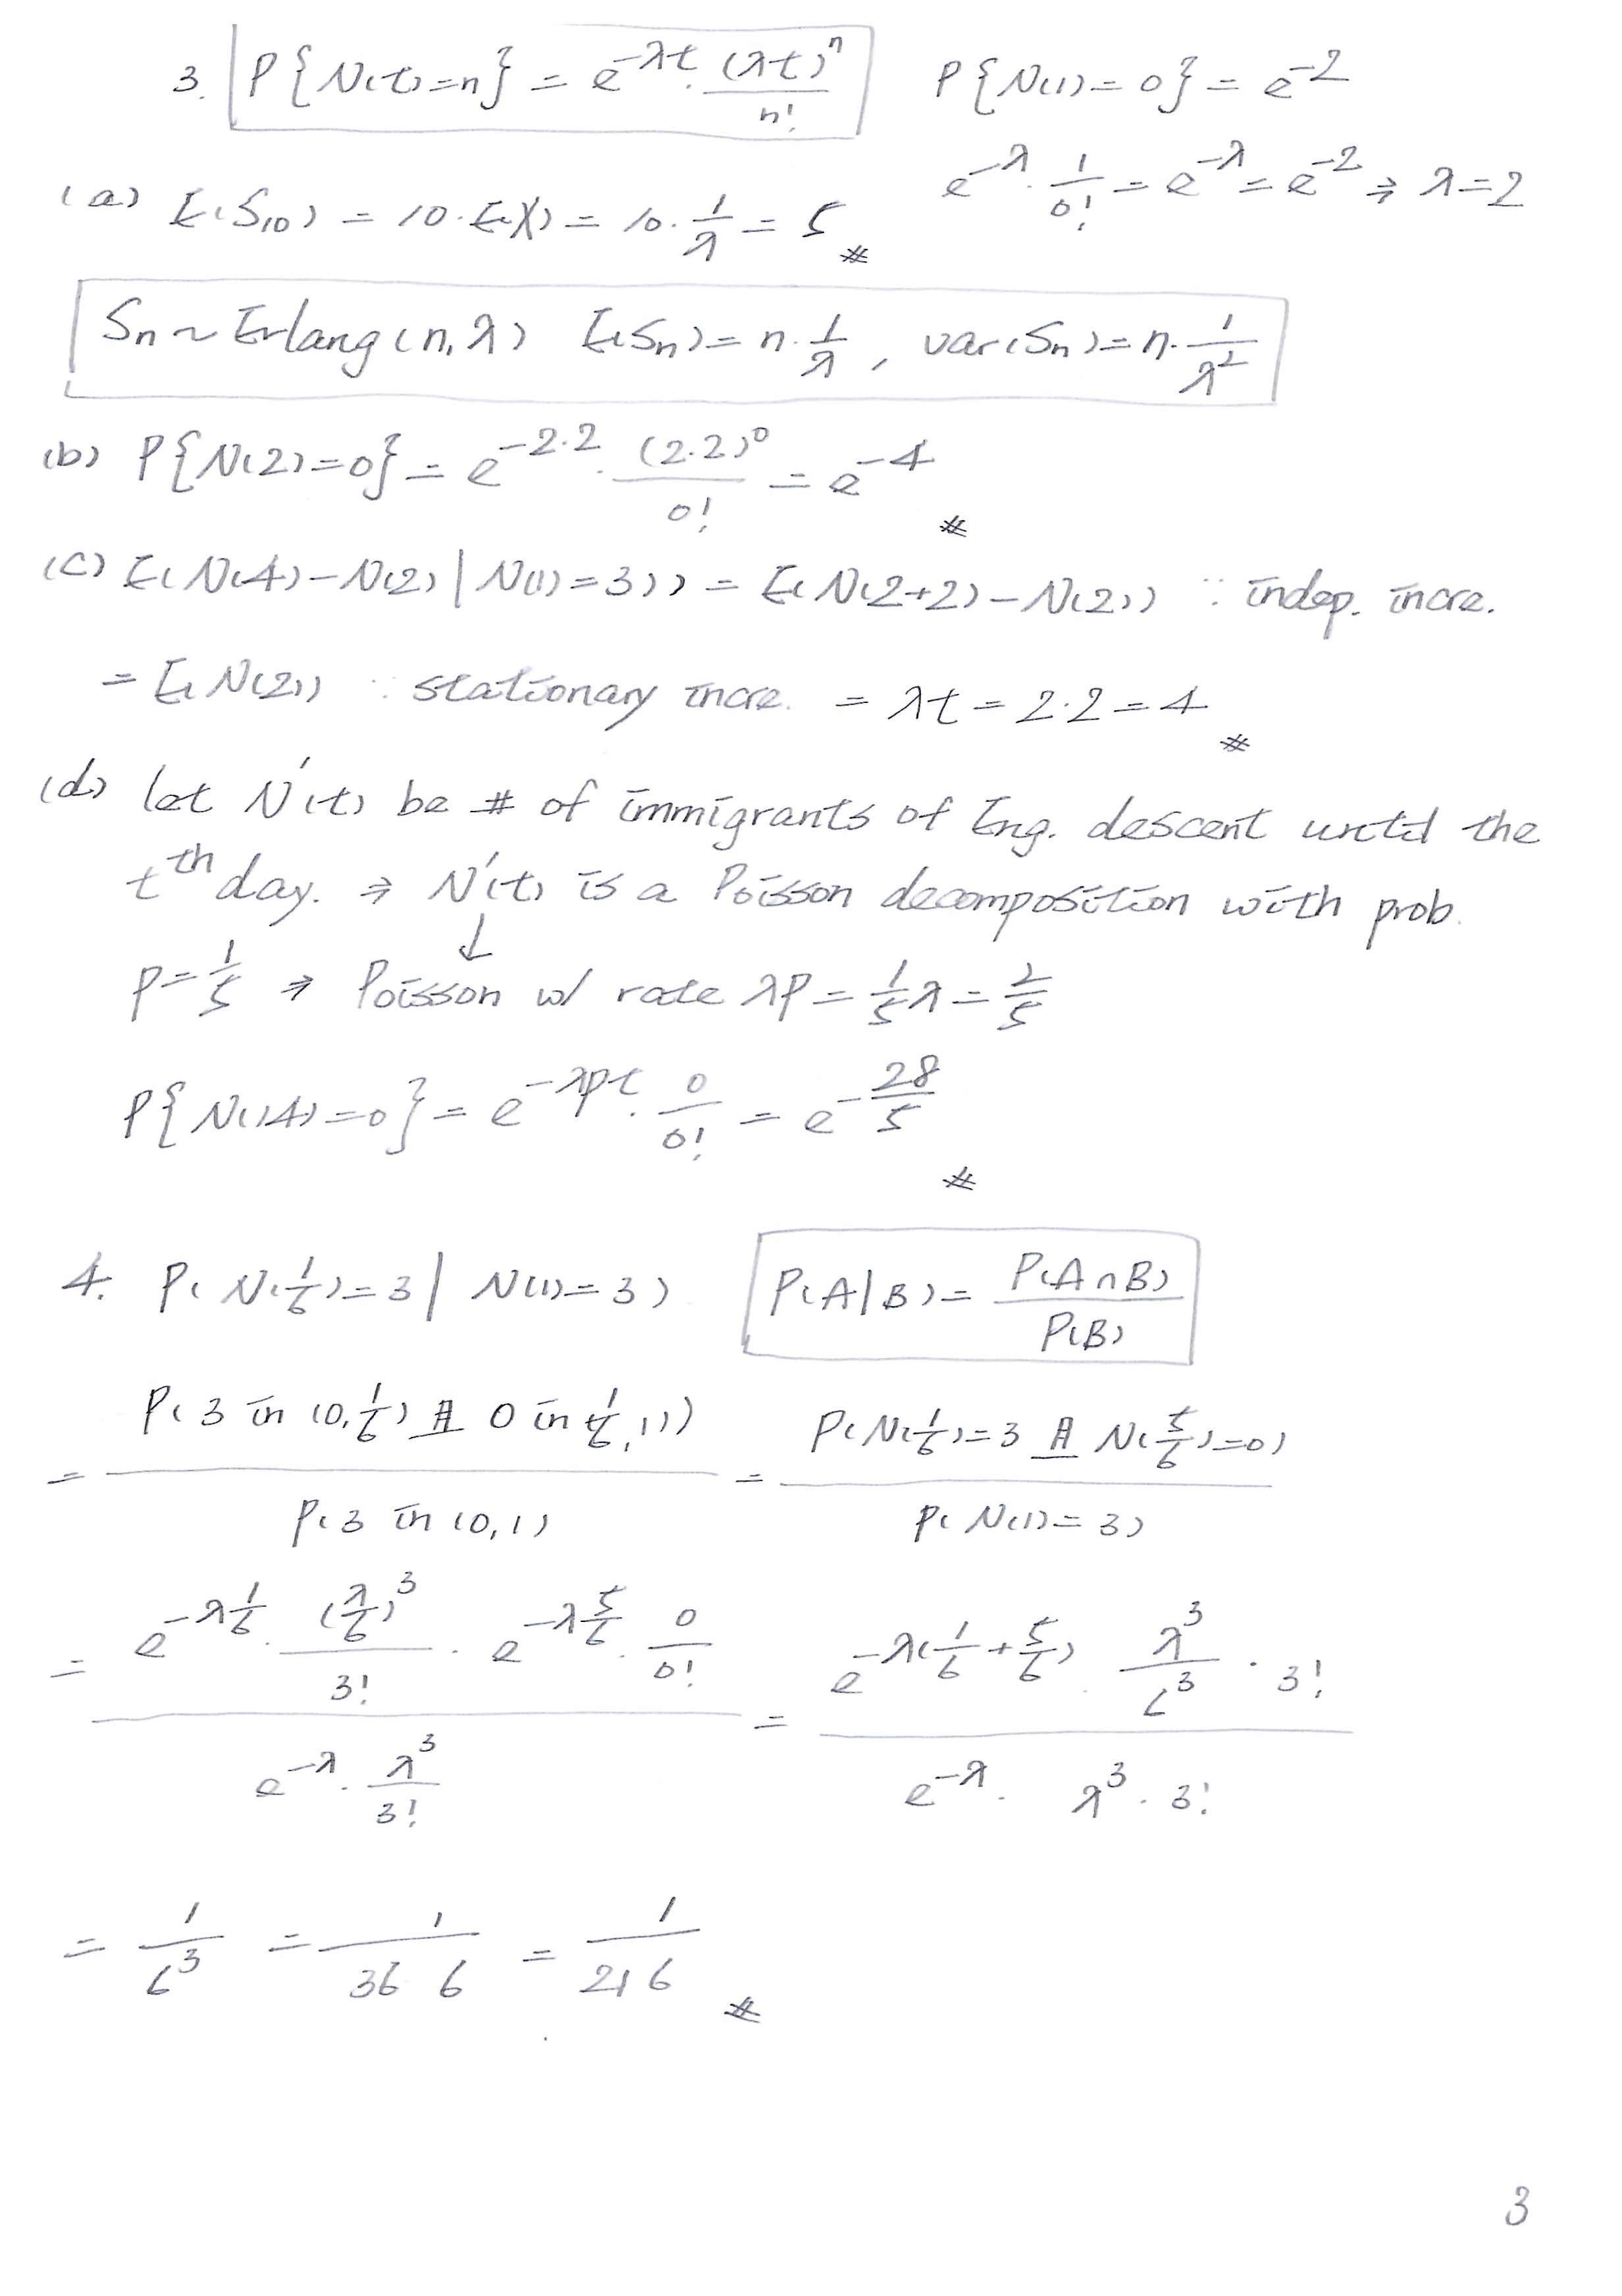 3. P{N(t)=n} = e^{-λt} · (λt)^n / n!    P{N(1)=0} = e^{-2}
e^{-λ} · 1/0! = e^{-λ} = e^{-2} ⇒ λ=2
(a) E(S₁₀) = 10·E(X) = 10 · 1/λ = 5 #
Sn ~ Erlang(n,λ)  E(Sn) = n · 1/λ , var(Sn) = n · 1/λ²
(b) P{N(2)=0} = e^{-2·2} · (2·2)^0 / 0! = e^{-4} #
(c) E(N(4)-N(2) | N(1)=3)) = E(N(2+2)-N(2)) ∵ indep. incre.
= E(N(2)) ∵ stationary incre. = λt = 2·2 = 4 #
(d) let N'(t) be # of immigrants of Eng. descent until the
t^th day. ⇒ N'(t) is a Poisson decomposition with prob.
↓
p = 1/5 ⇒ Poisson w/ rate λp = 1/5 λ = 2/5
P{N(14)=0} = e^{-λpt} · 0/0! = e^{-28/5} #
4. P(N(1/6)=3 | N(1)=3)    P(A|B) = P(A∩B) / P(B)
= P(3 in (0,1/6) ⫫ 0 in (1/6,1)) / P(3 in (0,1) = P(N(1/6)=3 ⫫ N(5/6)=0) / P(N(1)=3)
= e^{-λ1/6} · (λ/6)^3 / 3! · e^{-λ5/6} · 0/0! / e^{-λ} · λ^3/3! = e^{-λ(1/6+5/6)} · λ^3/6^3 · 3! / e^{-λ} · λ^3 · 3!
= 1/6^3 = 1/36 6 = 1/216 #
3